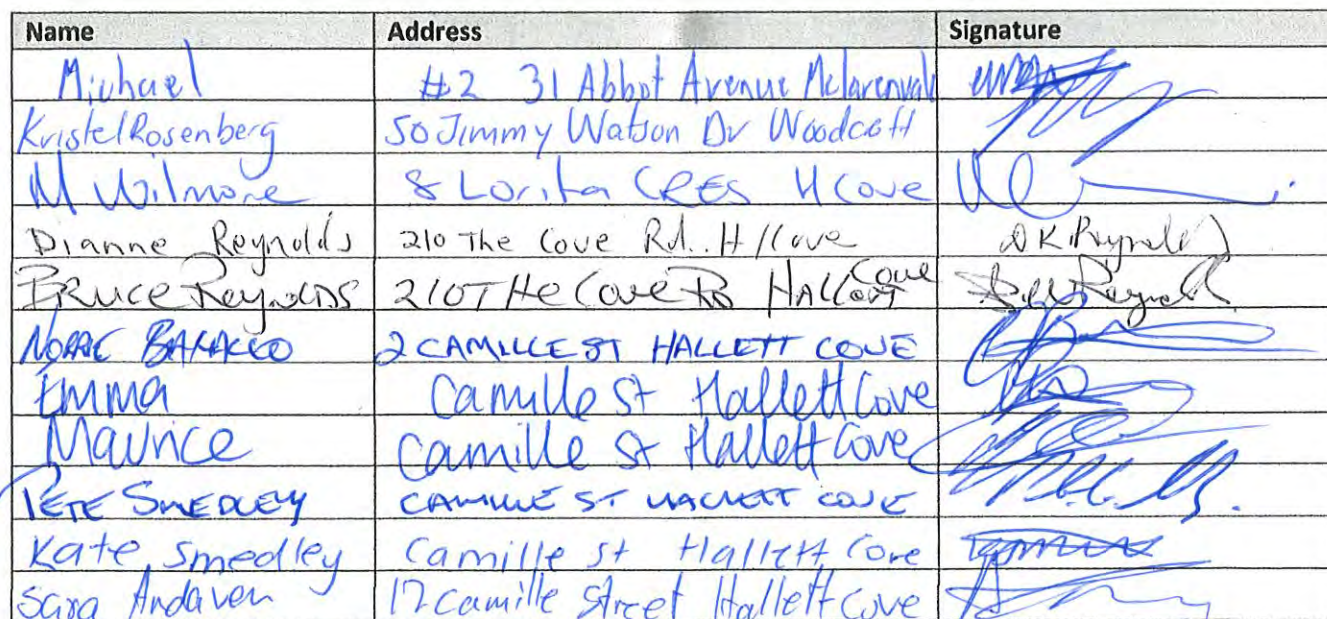 Name Address Signature
Michael #2 31 Abbot Avenue Mclarenvale
Kristel Rosenberg 50 Jimmy Watson Dr Woodcoft
M Wilmore 8 Lorita CRES H Cove
Dianne Reynolds 210 The Cove Rd. H/Cove DK Reynolds
BRUCE Reynolds 210 THe Cove RD HALLETT Cove
2 CAMILLE ST HALLETT COVE
Emma Camille St Hallett Cove
Maurice Camille St Hallett Cove
PETE SMEDLEY CAMILLE ST HALLETT COVE
Kate Smedley Camille St Hallett Cove
Sara Andaven 17 Camille Street Hallett Cove